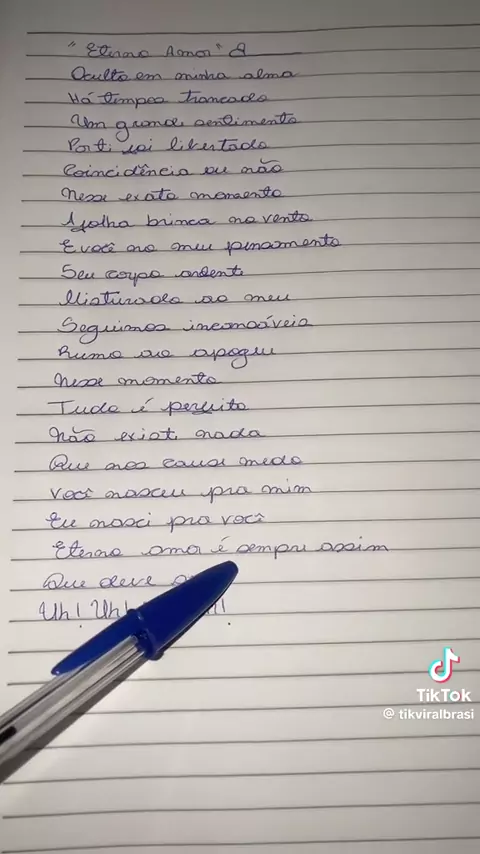 "Eterno Amor"
Oculto em minha alma
Há tempos trancado
Um grande sentimento
Por ti foi libertado
Coincidência ou não
Nesse exato momento
A folha brinca no vento
E você no meu pensamento
Seu corpo ardente
Misturado ao meu
Seguimos incansáveis
Rumo ao apogeu
Nesse momento
Tudo é perfeito
Não existe nada
Que nos cause medo
Você nasceu pra mim
Eu nasci pra você
Eterno amor é sempre assim
Que deve
Uh! Uh!
TikTok
@tikviralbrasi